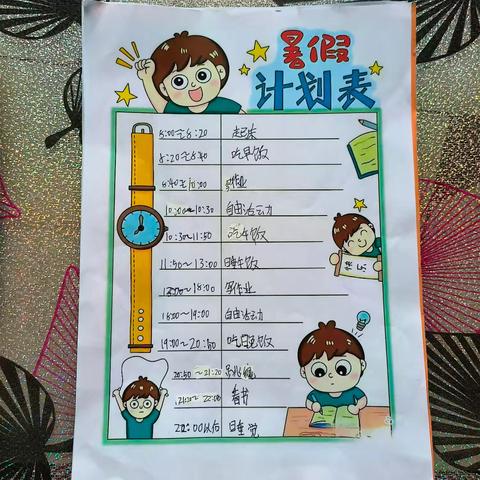 暑假
计划表
8:00~8:20 起床
8:20~8:40 吃早饭
8:40~10:00 写作业
10:00~10:30 自由活动
10:30~11:50 吃午饭
11:50~13:00 睡午饭
13:00~18:00 写作业
18:00~19:00 自由活动
19:00~20:50 吃晚饭
20:50~21:20 跳绳
21:20~22:00 看书
22:00以后 睡觉